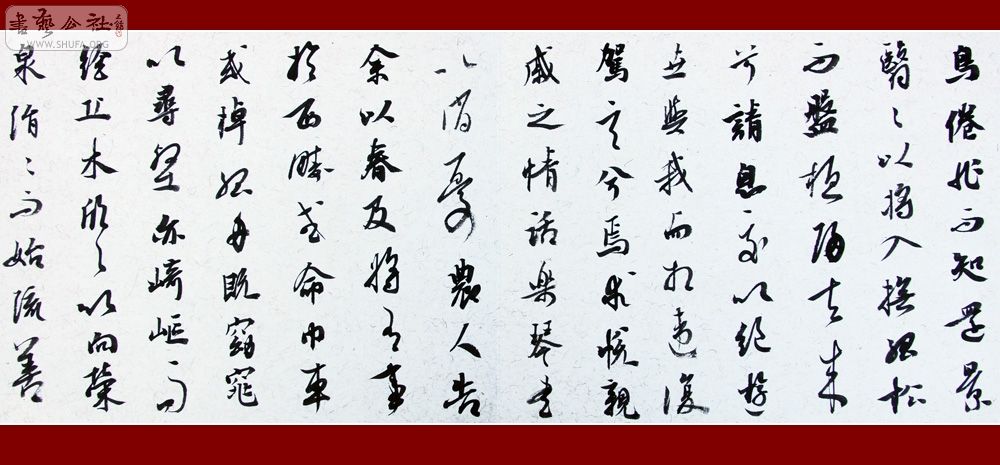 書藝公社
WWW.SHUFA.ORG
鳥倦飛而知還景
翳〻以將入撫孤松
而盤桓歸去來
兮請息交以絕遊
世與我而相違復
駕言兮焉求悅親
戚之情話樂琴書
以消憂農人告
余以春及將有事
於西疇或命巾車
或棹孤舟既窈窕
以尋壑亦崎嶇而
經丘木欣〻以向榮
泉涓〻而始流善